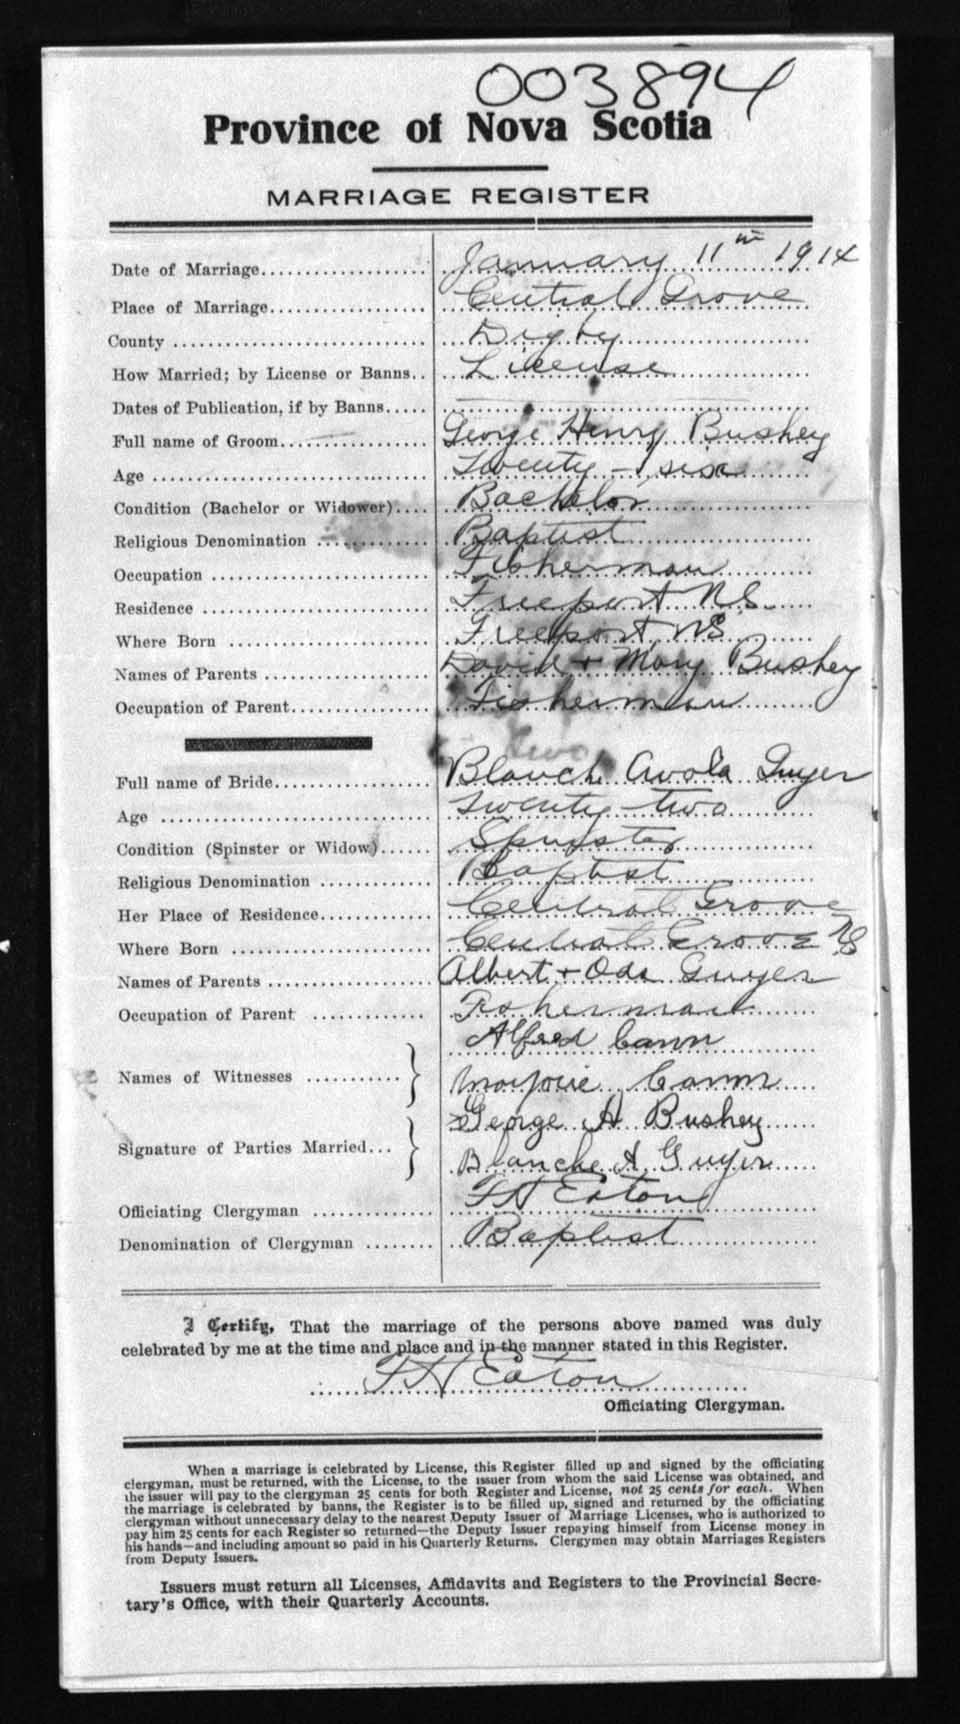 003894
Province of Nova Scotia
MARRIAGE REGISTER
Date of Marriage.................... January 11th 1914
Place of Marriage................... Central Grove
County ............................. Digby
How Married; by License or Banns.. License
Dates of Publication, if by Banns.....
Full name of Groom.................. George Henry Bushey
Age ................................ Twenty-six
Condition (Bachelor or Widower).... Bachelor
Religious Denomination ............. Baptist
Occupation ......................... Fisherman
Residence .......................... Freeport NS
Where Born ......................... Freeport NS
Names of Parents ................... David + Mary Bushey
Occupation of Parent................ Fisherman
two
Full name of Bride.................. Blanch Avola Guyer
Age ................................ Twenty-two
Condition (Spinster or Widow)...... Spinster
Religious Denomination ............. Baptist
Her Place of Residence.............. Central Grove
Where Born ......................... Central Grove NS
Names of Parents ................... Albert + Oda Guyer
Occupation of Parent ............... Fisherman
Alfred Cann
Names of Witnesses ........... }
Marjorie Cann
George H Bushey
Signature of Parties Married... }
Blanche A Guyer
Officiating Clergyman .............. F H Eaton
Denomination of Clergyman ........ Baptist
I Certify, That the marriage of the persons above named was duly
celebrated by me at the time and place and in the manner stated in this Register.
F H Eaton
Officiating Clergyman.
When a marriage is celebrated by License, this Register filled up and signed by the officiating
clergyman, must be returned, with the License, to the issuer from whom the said License was obtained, and
the issuer will pay to the clergyman 25 cents for both Register and License, not 25 cents for each. When
the marriage is celebrated by banns, the Register is to be filled up, signed and returned by the officiating
clergyman without unnecessary delay to the nearest Deputy Issuer of Marriage Licenses, who is authorized to
pay him 25 cents for each Register so returned—the Deputy Issuer repaying himself from License money in
his hands—and including amount so paid in his Quarterly Returns. Clergymen may obtain Marriages Registers
from Deputy Issuers.
Issuers must return all Licenses, Affidavits and Registers to the Provincial Secre-
tary's Office, with their Quarterly Accounts.